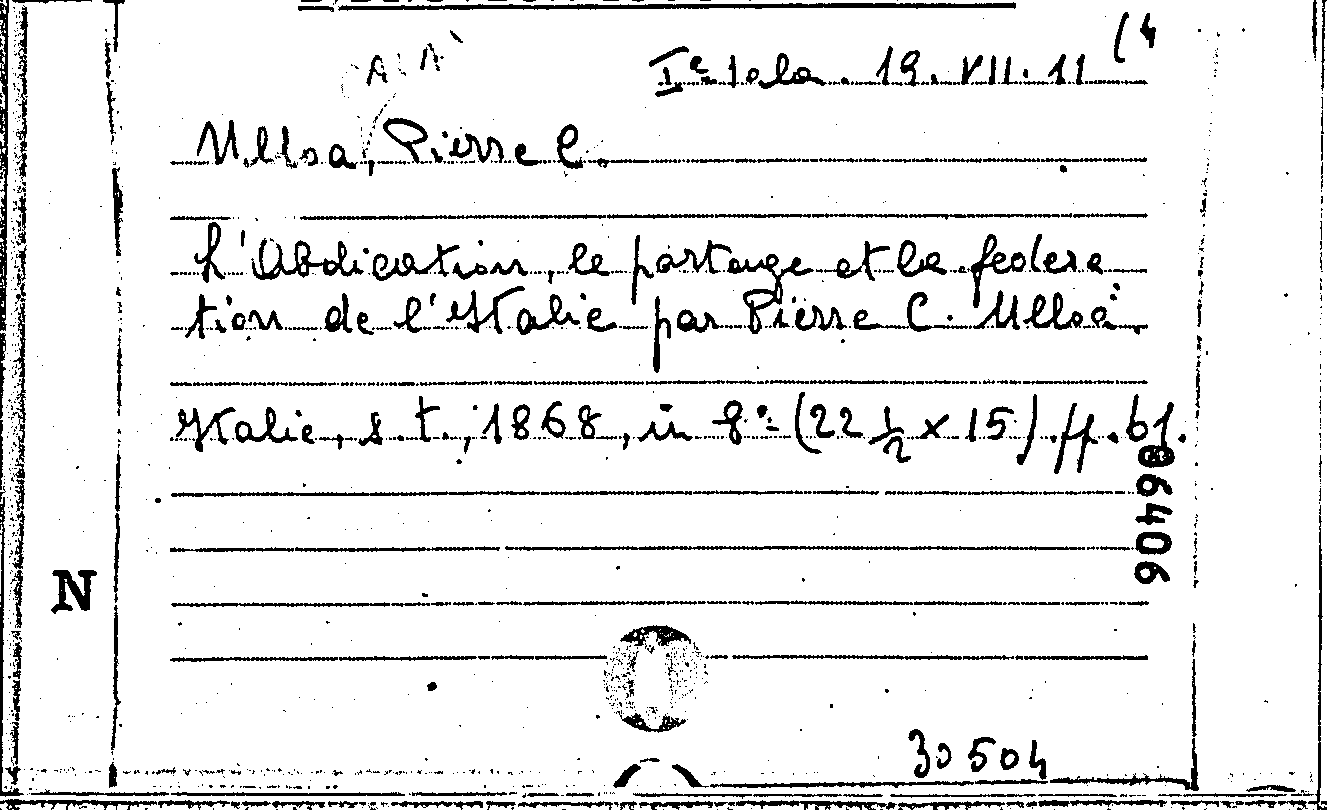 Iª Sala. 19. VII. 11 (4
Ulloa, Pierre C.
L'Abdication, le partage et la federa
tion de l'Italie par Pierre C. Ulloa.
Italie, s. t., 1868, in 8º (22 ½ x 15) pp. 61.
N
30504
86406